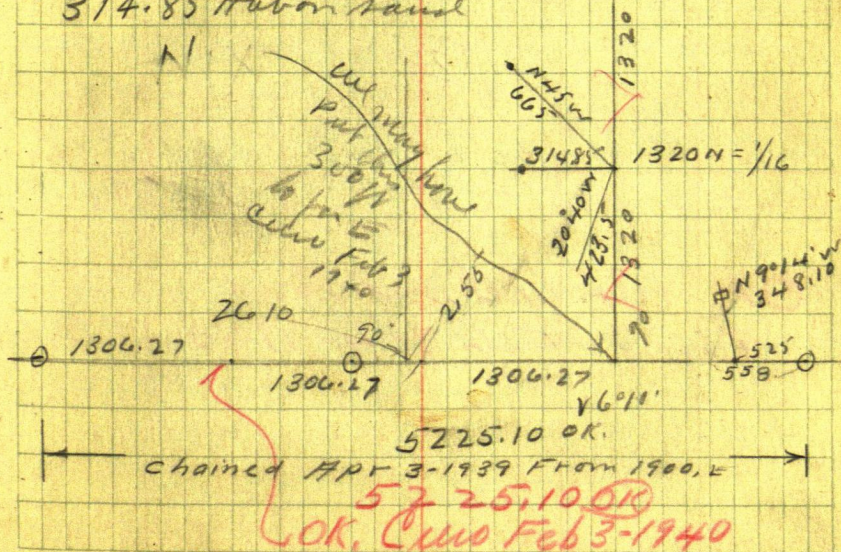 314.85
N
1320
we may have
Put this
300 ft
to far E
Feb 3
1940
N45W
665
31485
1320 N = 1/16
20°40W
423.5
1320
90
N9°14'W
348.10
2610
90°
2,56
1306.27
1306.27
1306.27
525
558
V6°11'
5225.10 OK.
Chained Apr 3-1939 From 1900, E
5225.10 OK
OK. Feb 3-1940